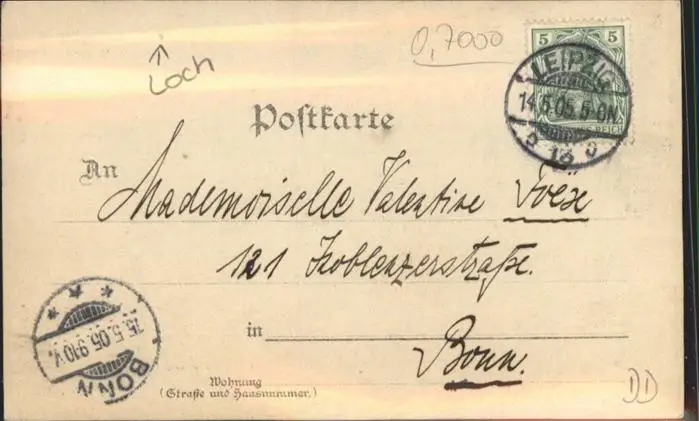 0,7000
Loch
5 5
LEIPZIG
14.5.05.5-6N.
13
Postkarte
An
Mademoiselle Valentine
121 Koblenzerstraße.
in
Bonn.
15.5.05.9-10V.
BONN
Wohnung
(Straße und Hausnummer.)
DD